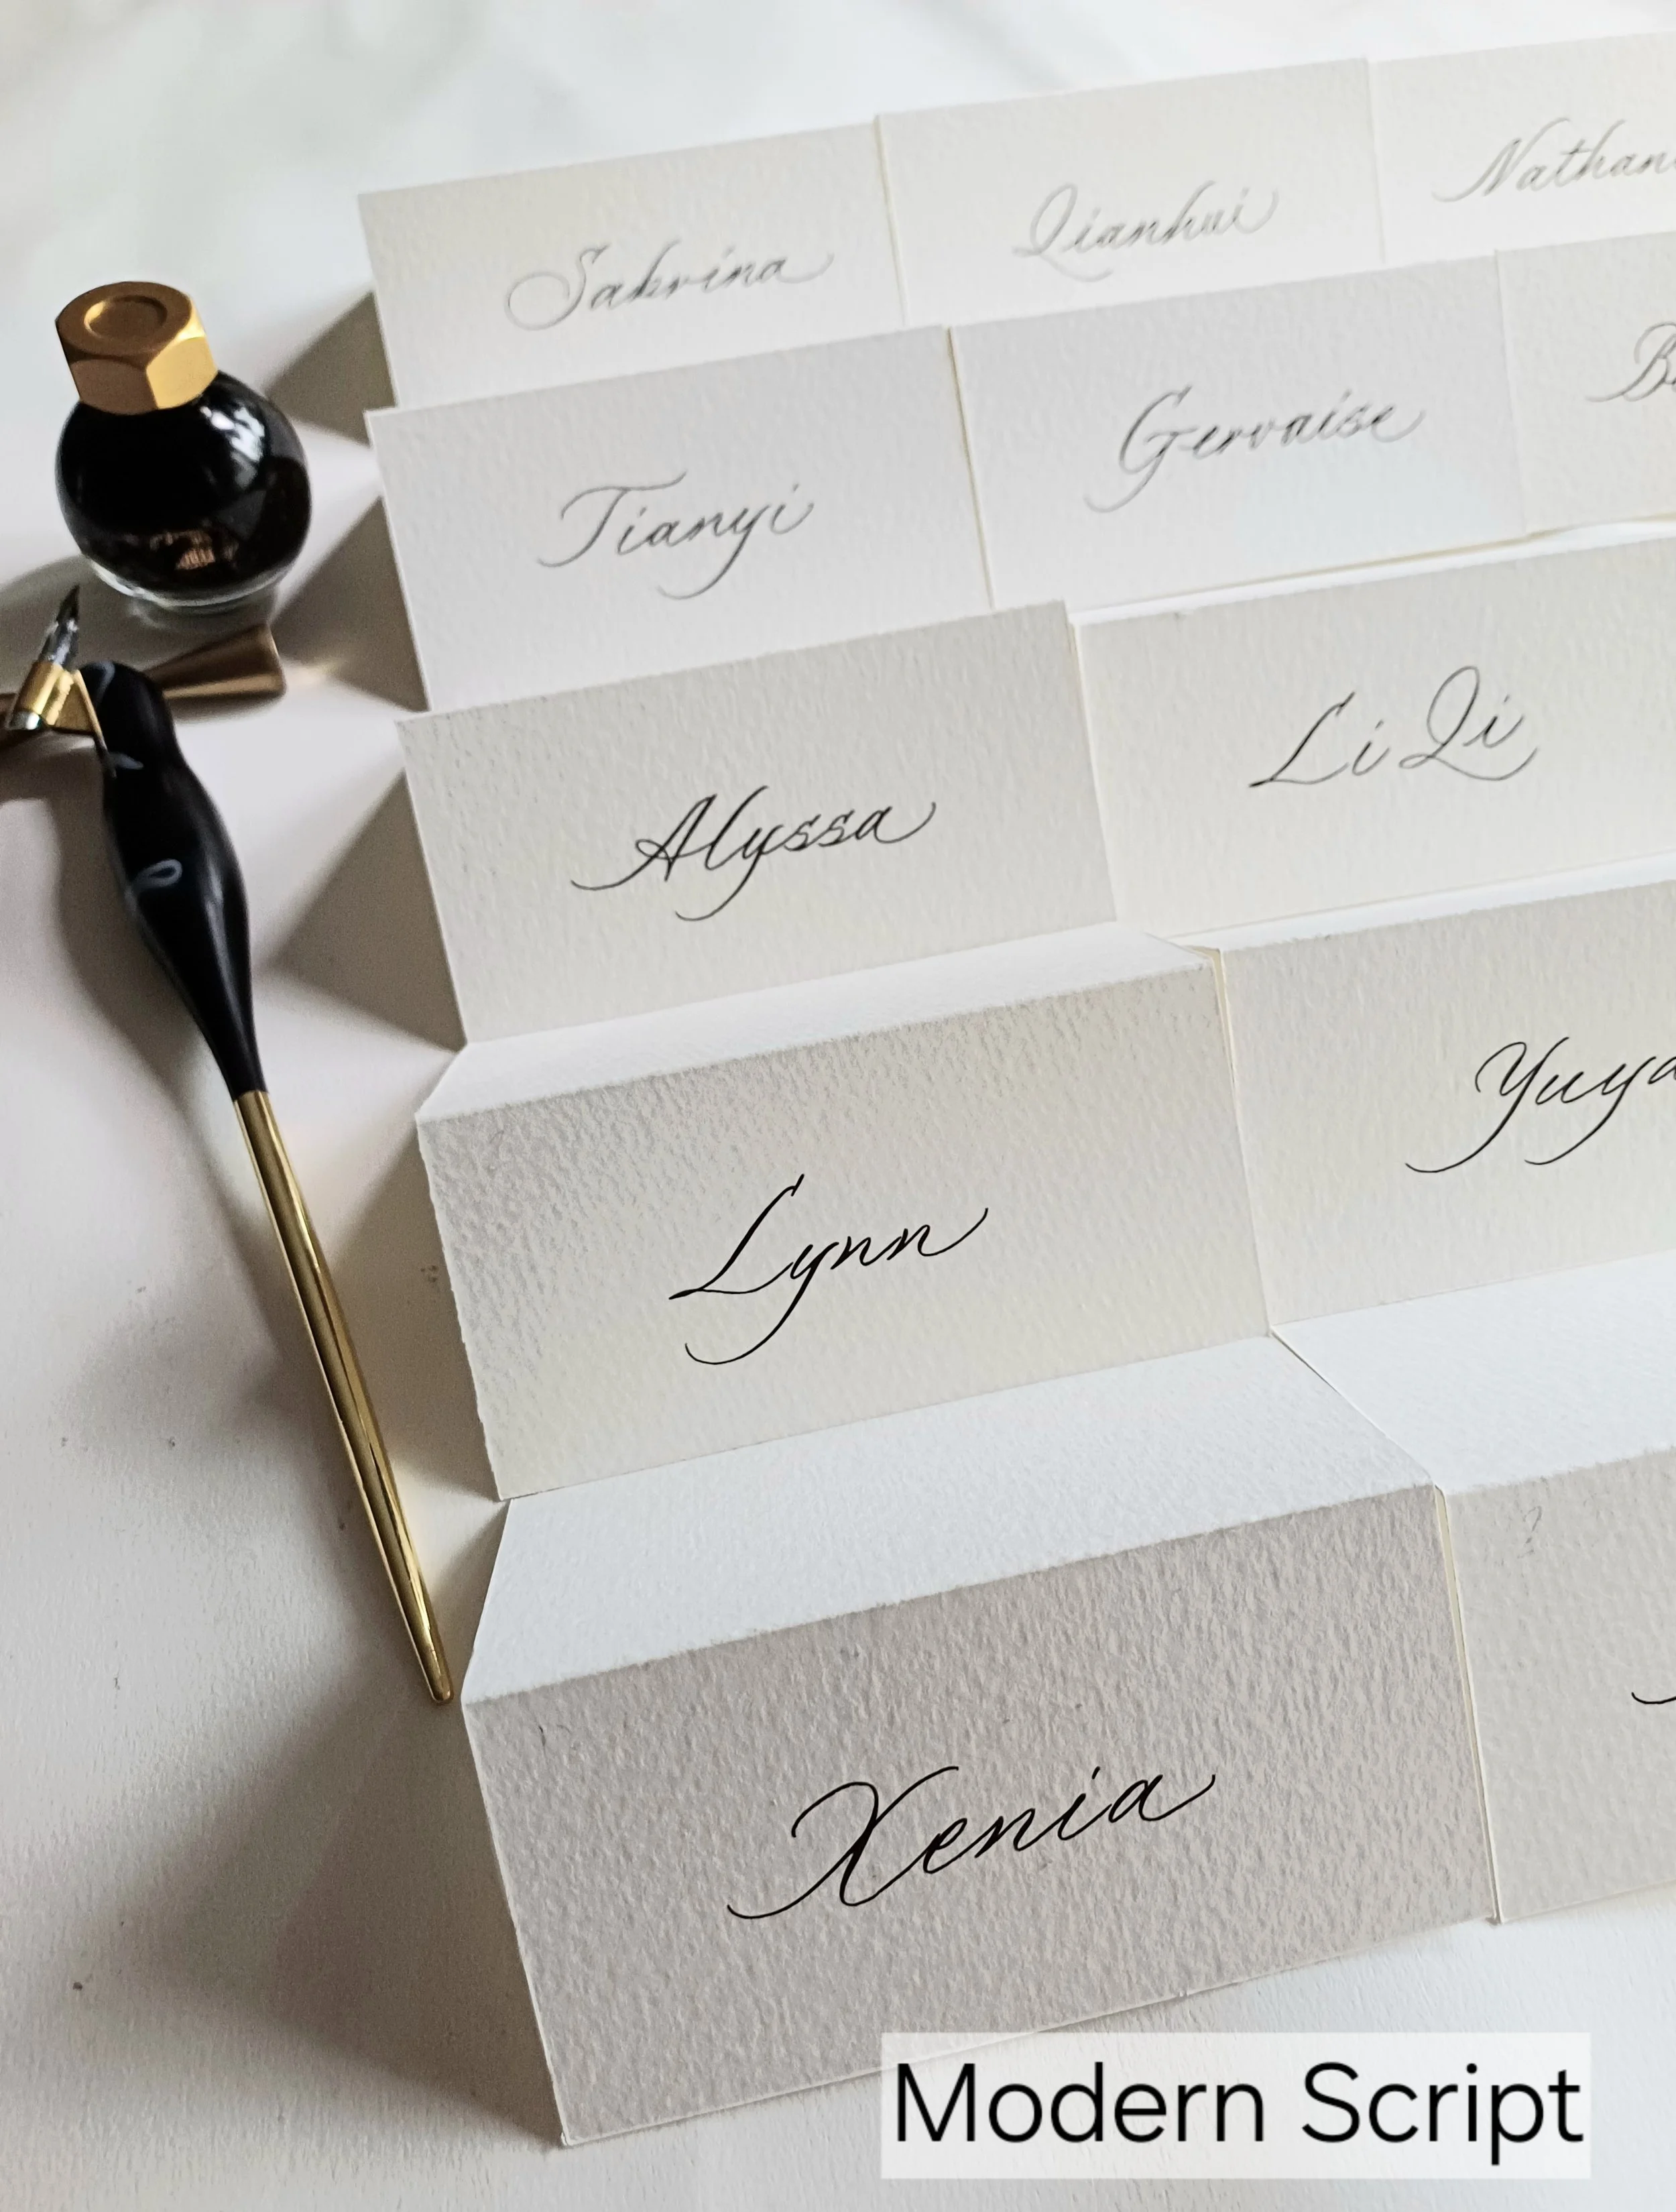 Sabrina Qianhui
Tianyi Gervaise
Alyssa Li Qi
Lynn
Xenia
Modern Script